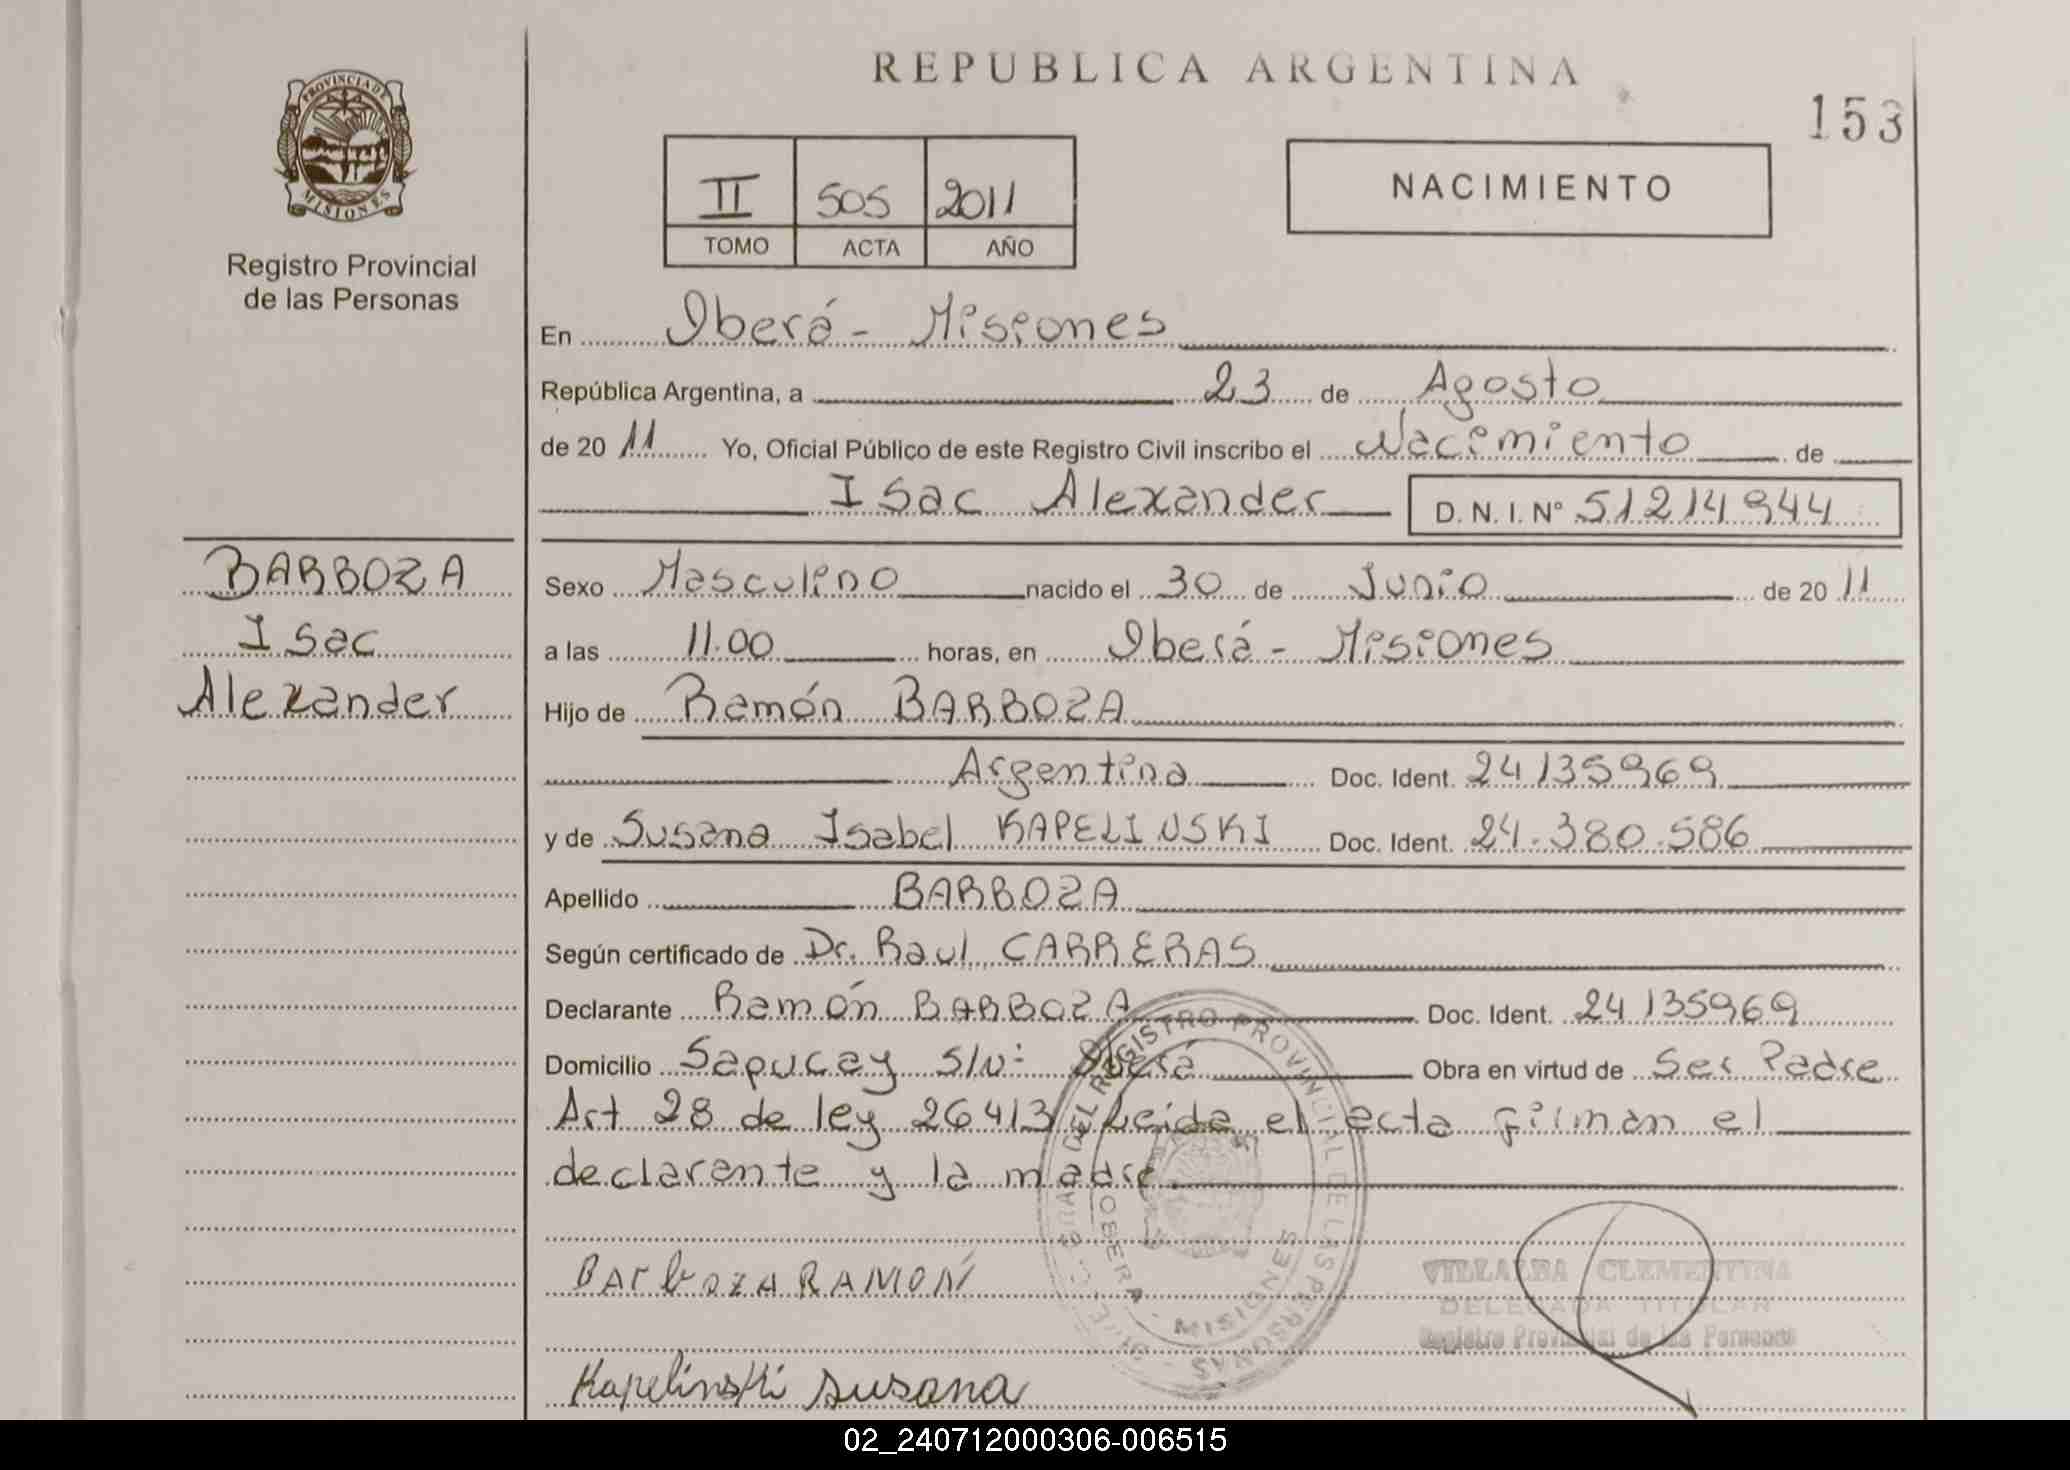 REPUBLICA ARGENTINA
153
PROVINCIA DE
MISIONES
Registro Provincial
de las Personas
II 505 2011
TOMO ACTA AÑO
NACIMIENTO
En Iberá - Misiones
República Argentina, a 23 de Agosto
de 2011 Yo, Oficial Público de este Registro Civil inscribo el Nacimiento de
Isac Alexander D. N. I. Nº 51214944
BARBOZA
Isac
Alexander
Sexo Masculino nacido el 30 de Junio de 2011
a las 11.00 horas, en Iberá - Misiones
Hijo de Ramón BARBOZA
Argentina Doc. Ident. 24135969
y de Susana Isabel KAPELINSKI Doc. Ident. 24.380.586
Apellido BARBOZA
Según certificado de Dr. Raul CARRERAS
Declarante Ramón BARBOZA Doc. Ident. 24135969
Domicilio Sapucay S/N: Iberá Obra en virtud de Ser Padre
Art 28 de ley 26413 Leida el acta firman el
declarante y la madre.
Barboza RAMON
Kapelinski susana
DEL REGISTRO PROVINCIAL DE LAS PERSONAS
OBERA - MISIONES
VILLALBA CLEMENTINA
DELEGADA TITULAR
Registro Provincial de las Personas
02_240712000306-006515